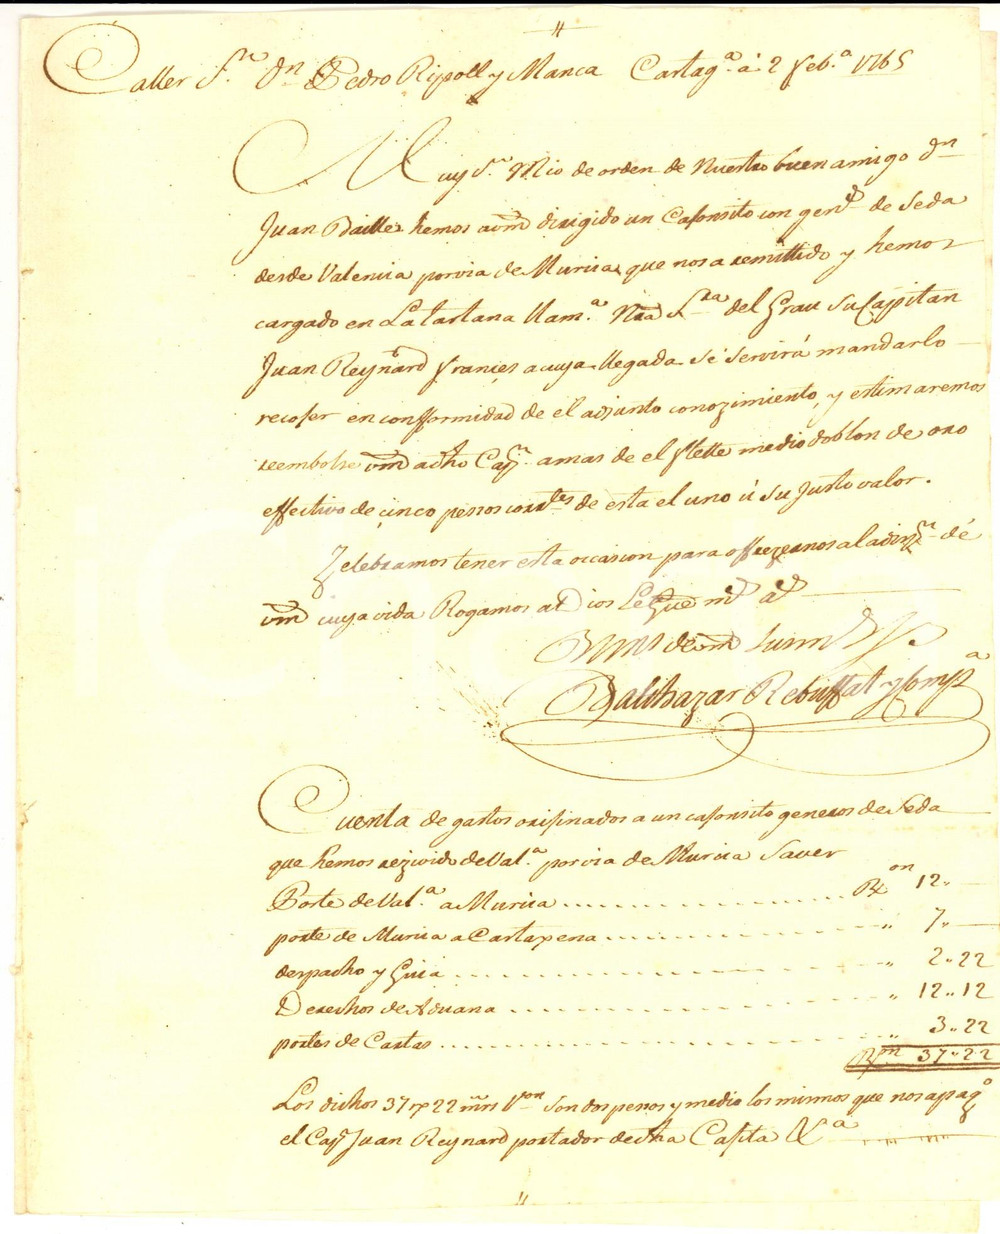 Caller Sr. Dn Pedro Ripoll y Manca Cartaga. a 2 Feb.a 1765
Muy Sr. Mio de orden de Nuestro buen amigo Dn
Juan Baille hemos a vm dirigido un Cafonsito con gens. de Seda
desde Valencia por via de Murcia, que nos a remittido y hemos
cargado en La tartana llam.a Nra Sra del Grau su Capitan
Juan Reynard frances a cuya llegada se servirá mandarlo
recojer en conformidad de el adjunto conozimiento, y estimaremos
reembolse vm a dho Capn. a mas de el flette medio doblon de oro
effectivo de cinco pessos corrtes de esta el uno ú su Justo valor.
Zelebramos tener esta occasion para offrezernos a la dispn. de
vm cuya vida Rogamos a Dios Le Gue ms. as.
BlMs de vm sus ms Ss.
Balthazar Rebuffat y Comp.a
Cuenta de gastos orijinados a un cafonsito generos de Seda
que hemos rezivido de Val.a por via de Murcia Saver
Porte de Val.a a Murcia .................. Rx on 12 "
porte de Murcia a Cartaxena .................. " 7 "
despacho y Guia .................. " 2 " 22
Derechos de Aduana .................. " 12 " 12
portes de Cartas .................. " 3 " 22
Rs on 37 " 22
Los dichos 37 rs 22 mrs Von son dos pesos y medio los mismos que nos a pago
el Capn Juan Reynard portador de dha Cafita Xa